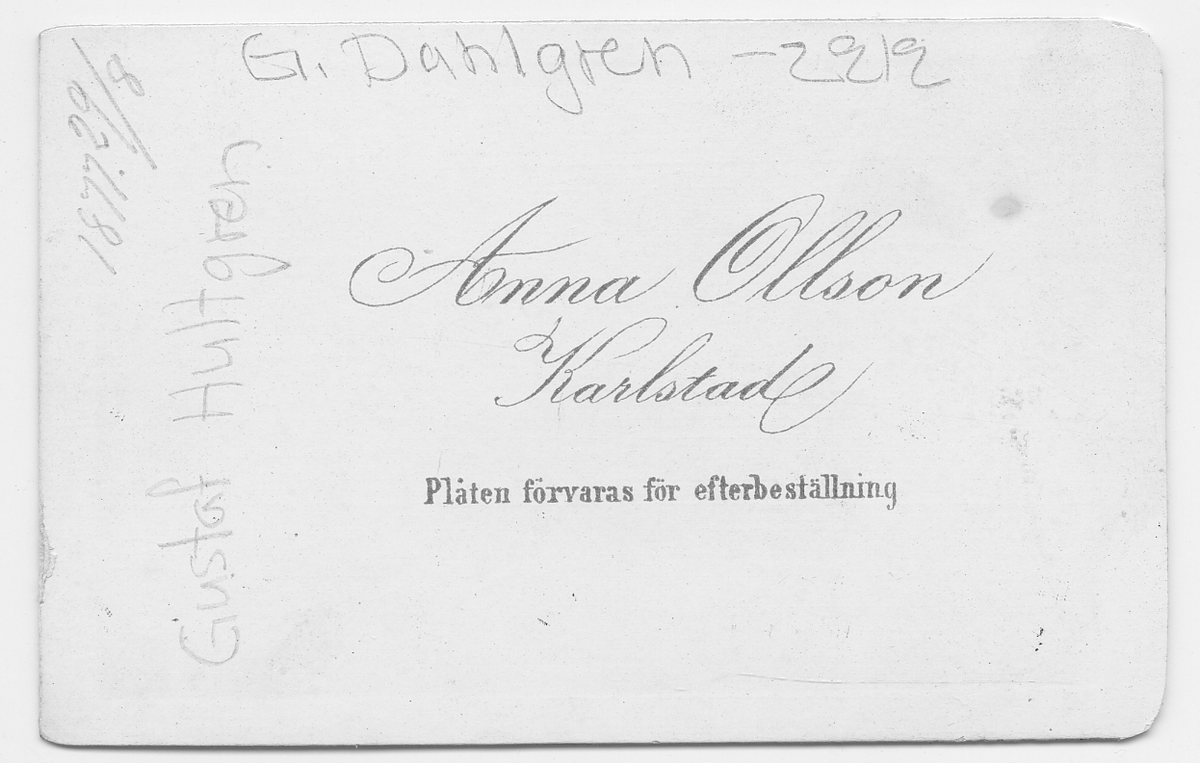 G. Dahlgren
Gustaf Hultgren
Anna Ollson
Karlstad
Plåten förvaras för efterbeställning